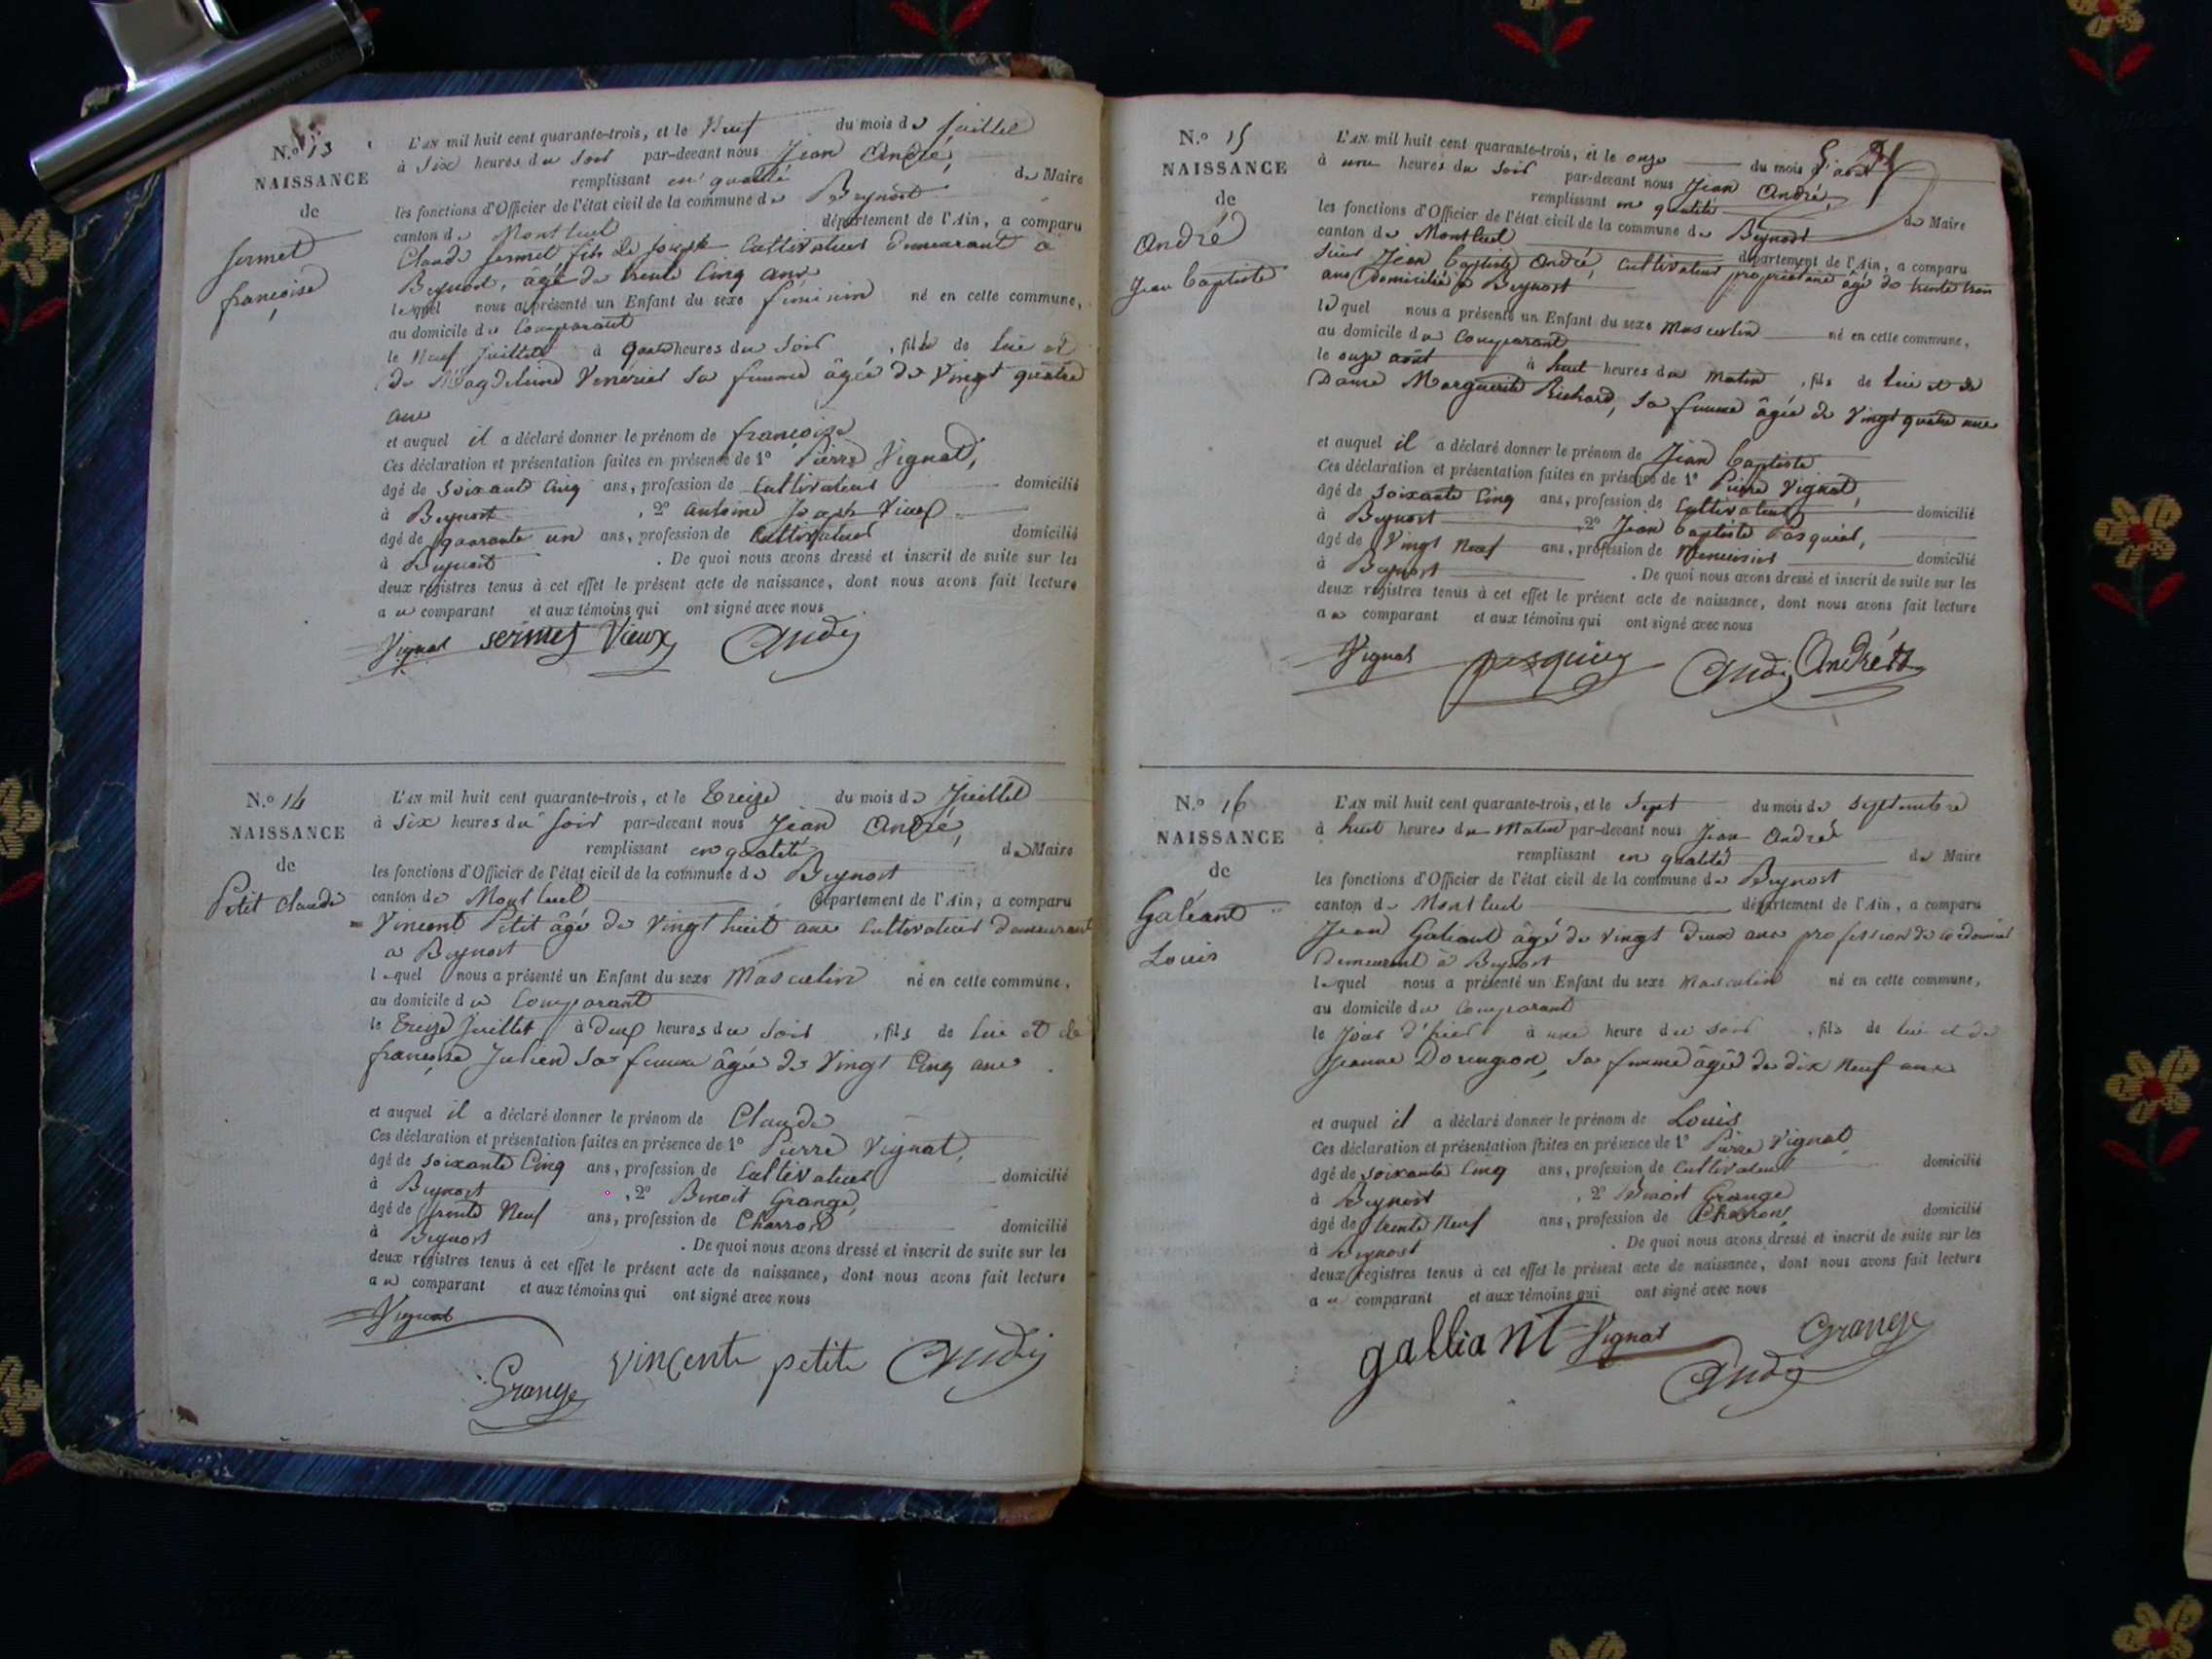 N.º 13
NAISSANCE
de
Sermet
françoise
L'AN mil huit cent quarante-trois, et le Neuf du mois de Juillet
à Six heures du Soir par-devant nous Jean André,
remplissant en qualité de Maire
les fonctions d'Officier de l'état civil de la commune de Beynost
canton de Montluel département de l'Ain, a comparu
Claude Sermet fils de Joseph Cultivateur demeurant à
Beynost, âgé de trente Cinq ans
lequel nous a présenté un Enfant du sexe féminin né en cette commune,
au domicile du Comparant
le Neuf Juillet à quatre heures du Soir, fille de lui et
de Magdeleine sa femme âgée de Vingt quatre
ans
et auquel il a déclaré donner le prénom de françoise
Ces déclaration et présentation faites en présence de 1º Pierre Vignat,
âgé de Soixante Cinq ans, profession de Cultivateur domicilié
à Beynost, 2º Antoine Joseph Vieux
âgé de quarante un ans, profession de Cultivateur domicilié
à Beynost. De quoi nous avons dressé et inscrit de suite sur les
deux registres tenus à cet effet le présent acte de naissance, dont nous avons fait lecture
au comparant et aux témoins qui ont signé avec nous
Vignat sermet Vieux André
N.º 14
NAISSANCE
de
Petit Claude
L'AN mil huit cent quarante-trois, et le Treize du mois de Juillet
à Six heures du Soir par-devant nous Jean André,
remplissant en qualité de Maire
les fonctions d'Officier de l'état civil de la commune de Beynost
canton de Montluel département de l'Ain, a comparu
Vincent Petit âgé de Vingt huit ans Cultivateur demeurant
à Beynost
lequel nous a présenté un Enfant du sexe Masculin né en cette commune,
au domicile du Comparant
le Treize Juillet à deux heures du Soir, fils de lui et de
françoise Julien sa femme âgée de Vingt Cinq ans
et auquel il a déclaré donner le prénom de Claude
Ces déclaration et présentation faites en présence de 1º Pierre Vignat,
âgé de soixante Cinq ans, profession de Cultivateur domicilié
à Beynost, 2º Benoit Grange,
âgé de trente Neuf ans, profession de Charron domicilié
à Beynost. De quoi nous avons dressé et inscrit de suite sur les
deux registres tenus à cet effet le présent acte de naissance, dont nous avons fait lecture
au comparant et aux témoins qui ont signé avec nous
Vignat
Grange vincent petit André
N.º 15
NAISSANCE
de
André
Jean Baptiste
L'AN mil huit cent quarante-trois, et le onze du mois d'août
à une heures du Soir par-devant nous Jean André,
remplissant en qualité de Maire
les fonctions d'Officier de l'état civil de la commune de Beynost
canton de Montluel département de l'Ain, a comparu
Sieur Jean Baptiste André, Cultivateur propriétaire âgé de trente trois
ans domicilié à Beynost
lequel nous a présenté un Enfant du sexe Masculin né en cette commune,
au domicile du Comparant
le onze août à huit heures du Matin, fils de lui et de
Dame Marguerite Richard, sa femme âgée de Vingt quatre ans
et auquel il a déclaré donner le prénom de Jean Baptiste
Ces déclaration et présentation faites en présence de 1º Pierre Vignat,
âgé de Soixante Cinq ans, profession de Cultivateur domicilié
à Beynost, 2º Jean Baptiste Pasquier,
âgé de Vingt Neuf ans, profession de Menuisier domicilié
à Beynost. De quoi nous avons dressé et inscrit de suite sur les
deux registres tenus à cet effet le présent acte de naissance, dont nous avons fait lecture
au comparant et aux témoins qui ont signé avec nous
Vignat pasquier André André
N.º 16
NAISSANCE
de
Galéant
Louis
L'AN mil huit cent quarante-trois, et le Sept du mois de Septembre
à huit heures du Matin par-devant nous Jean André
remplissant en qualité de Maire
les fonctions d'Officier de l'état civil de la commune de Beynost
canton de Montluel département de l'Ain, a comparu
Jean Galéant âgé de Vingt deux ans profession de Cordonnier
demeurant à Beynost
lequel nous a présenté un Enfant du sexe Masculin né en cette commune,
au domicile du Comparant
le Jour d'hier à une heure du Soir, fils de lui et de
Jeanne sa femme âgée de dix Neuf ans
et auquel il a déclaré donner le prénom de Louis
Ces déclaration et présentation faites en présence de 1º Pierre Vignat
âgé de soixante Cinq ans, profession de Cultivateur domicilié
à Beynost, 2º Benoit Grange
âgé de trente Neuf ans, profession de Charron, domicilié
à Beynost. De quoi nous avons dressé et inscrit de suite sur les
deux registres tenus à cet effet le présent acte de naissance, dont nous avons fait lecture
au comparant et aux témoins qui ont signé avec nous
galliant Vignat Grange
André